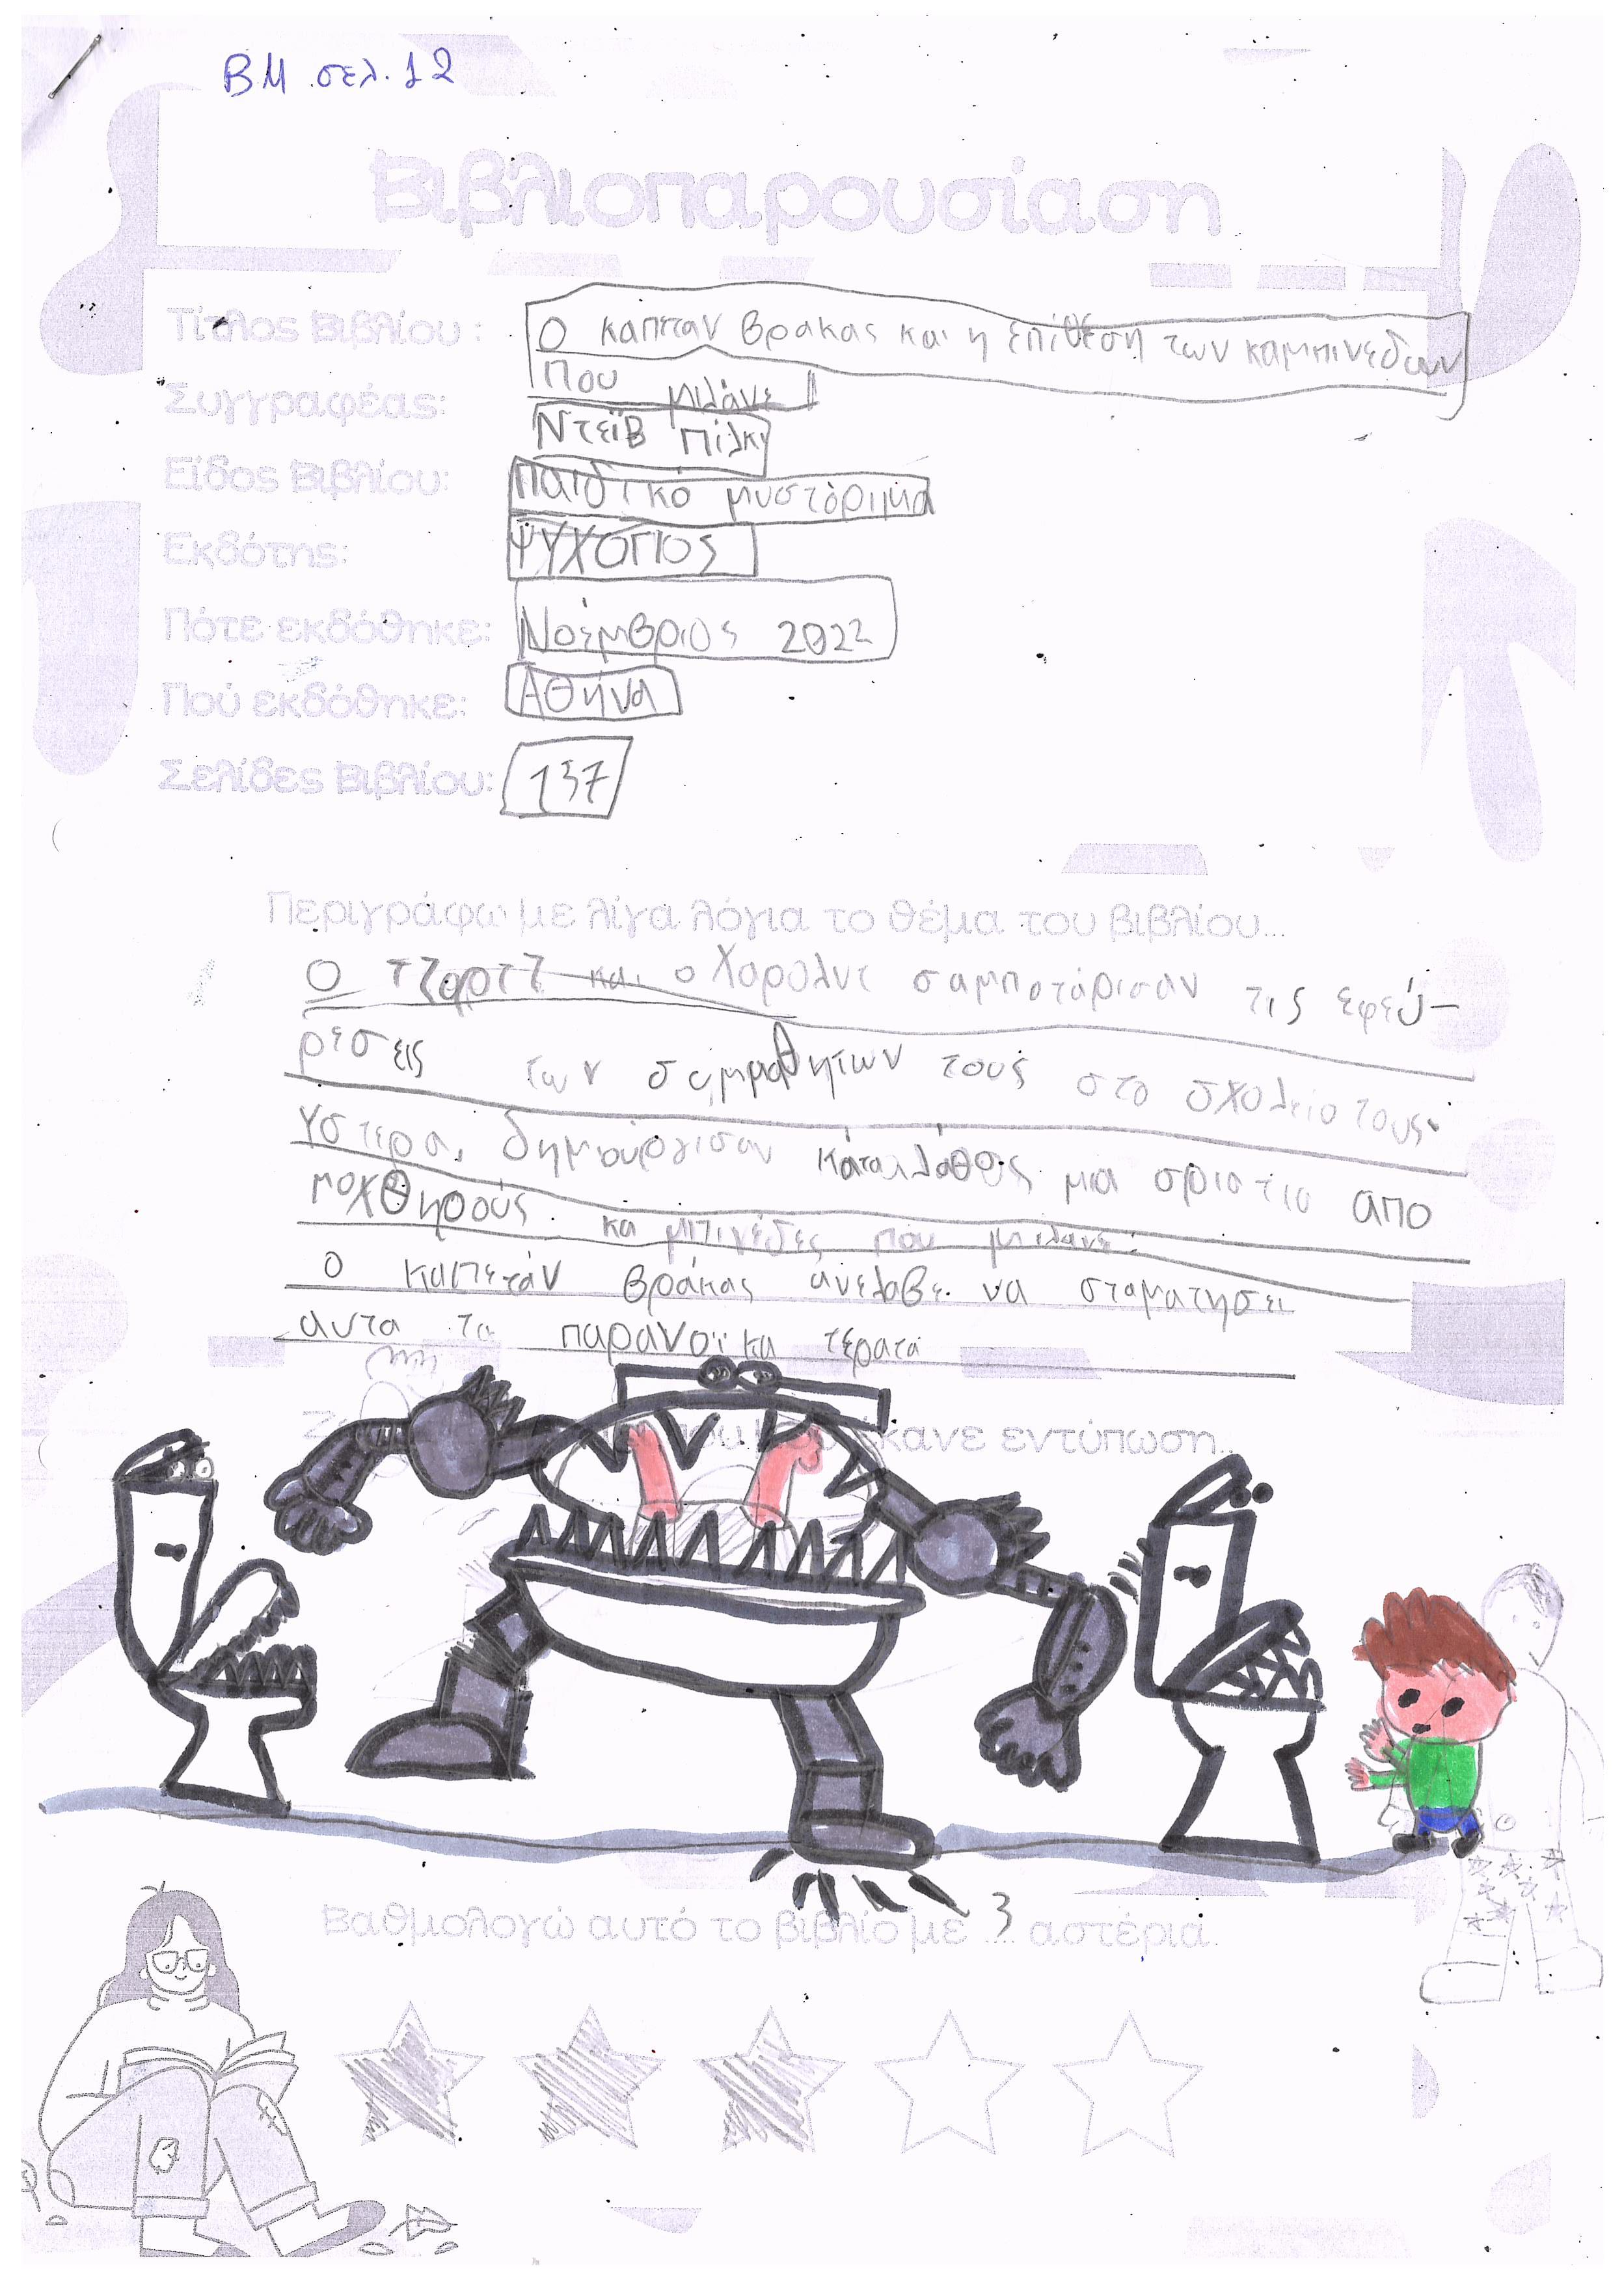 ΒΜ σελ. 12
Βιβλιοπαρουσίαση
Τίτλος Βιβλίου: Ο καπεταν βρακας και η επίθεση των καμπινεδων
που μιλάνε
Συγγραφέας: Ντέιβ Πίλκι
Είδος Βιβλίου: παιδικό μυστόριμα
Εκδότης: ΨΥΧΟΓΙΟΣ
Πότε εκδόθηκε: Νοέμβριος 2022
Πού εκδόθηκε: Αθήνα
Σελίδες Βιβλίου: 137
Περιγράφω με λίγα λόγια το θέμα του βιβλίου...
Ο Τζορτζ και ο Χάρολντ σαμποτάρισαν τις εφεύ-
ρεσεις των συμμαθητων τους στο σχολείο τους.
Υστερα, δημιούργισαν κάταλάθος μια στρατια απο
μοχθηρούς καμπινέδες που μιλανε.
Ο καπετάν βράκας ανελαβε να σταματησει
αυτα τα παράνοϊκα τέρατα
κανε εντύπωση...
Βαθμολογώ αυτό το βιβλίο με 3 αστέρια